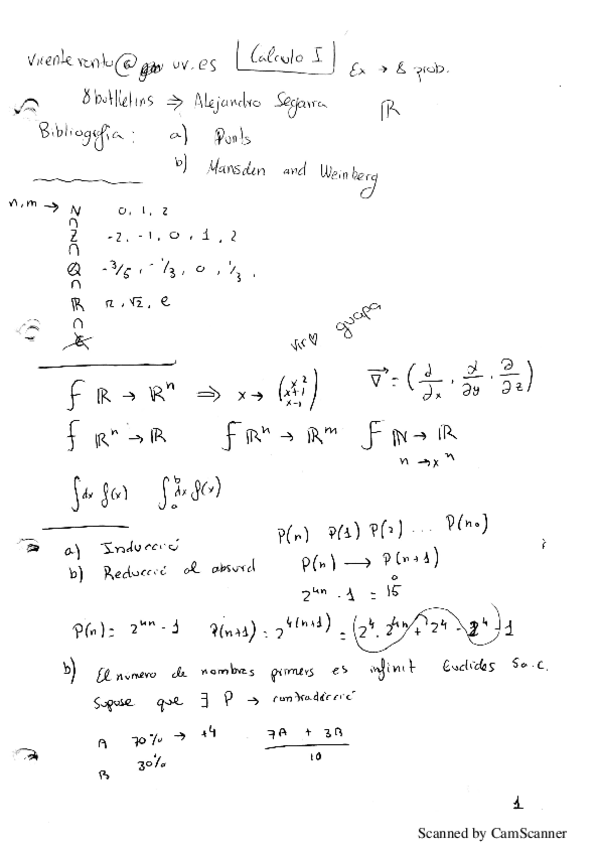 Vicente.vento@ uv.es Calculo I Ex → 8 prob.
8 butlletins ⇒ Alejandro Segarra ℝ
Bibliografia: a) Punts
b) Marsden and Weinberg
n,m → ℕ 0, 1, 2
∩
ℤ -2, -1, 0, 1, 2
∩
ℚ -3/5, -1/3, 0, 1/3,
∩
ℝ π, √2, e
∩
Vir♡ guapa
f ℝ → ℝⁿ ⇒ x → (x² x+1 x-1) ∇⃗ = (∂/∂x, ∂/∂y, ∂/∂z)
f ℝⁿ → ℝ f ℝⁿ → ℝᵐ f ℕ → ℝ
n → xⁿ
∫dx f(x) ∫ₐᵇ dx f(x)
a) Inducció P(n) P(1) P(2) ... P(n₀)
b) Reducció al absurd P(n) ⟶ P(n+1)
2⁴ⁿ - 1 = 15
P(n) = 2⁴ⁿ - 1 P(n+1) = 2⁴⁽ⁿ⁺¹⁾ = (2⁴ · 2⁴ⁿ + 2⁴ - 2⁴) - 1
b) El numero de nombres primers es infinit Euclides 5 a.C.
Supose que ∃ P → contradicció
A 70% → +4 7A + 3B
B 30% 10
1
Scanned by CamScanner